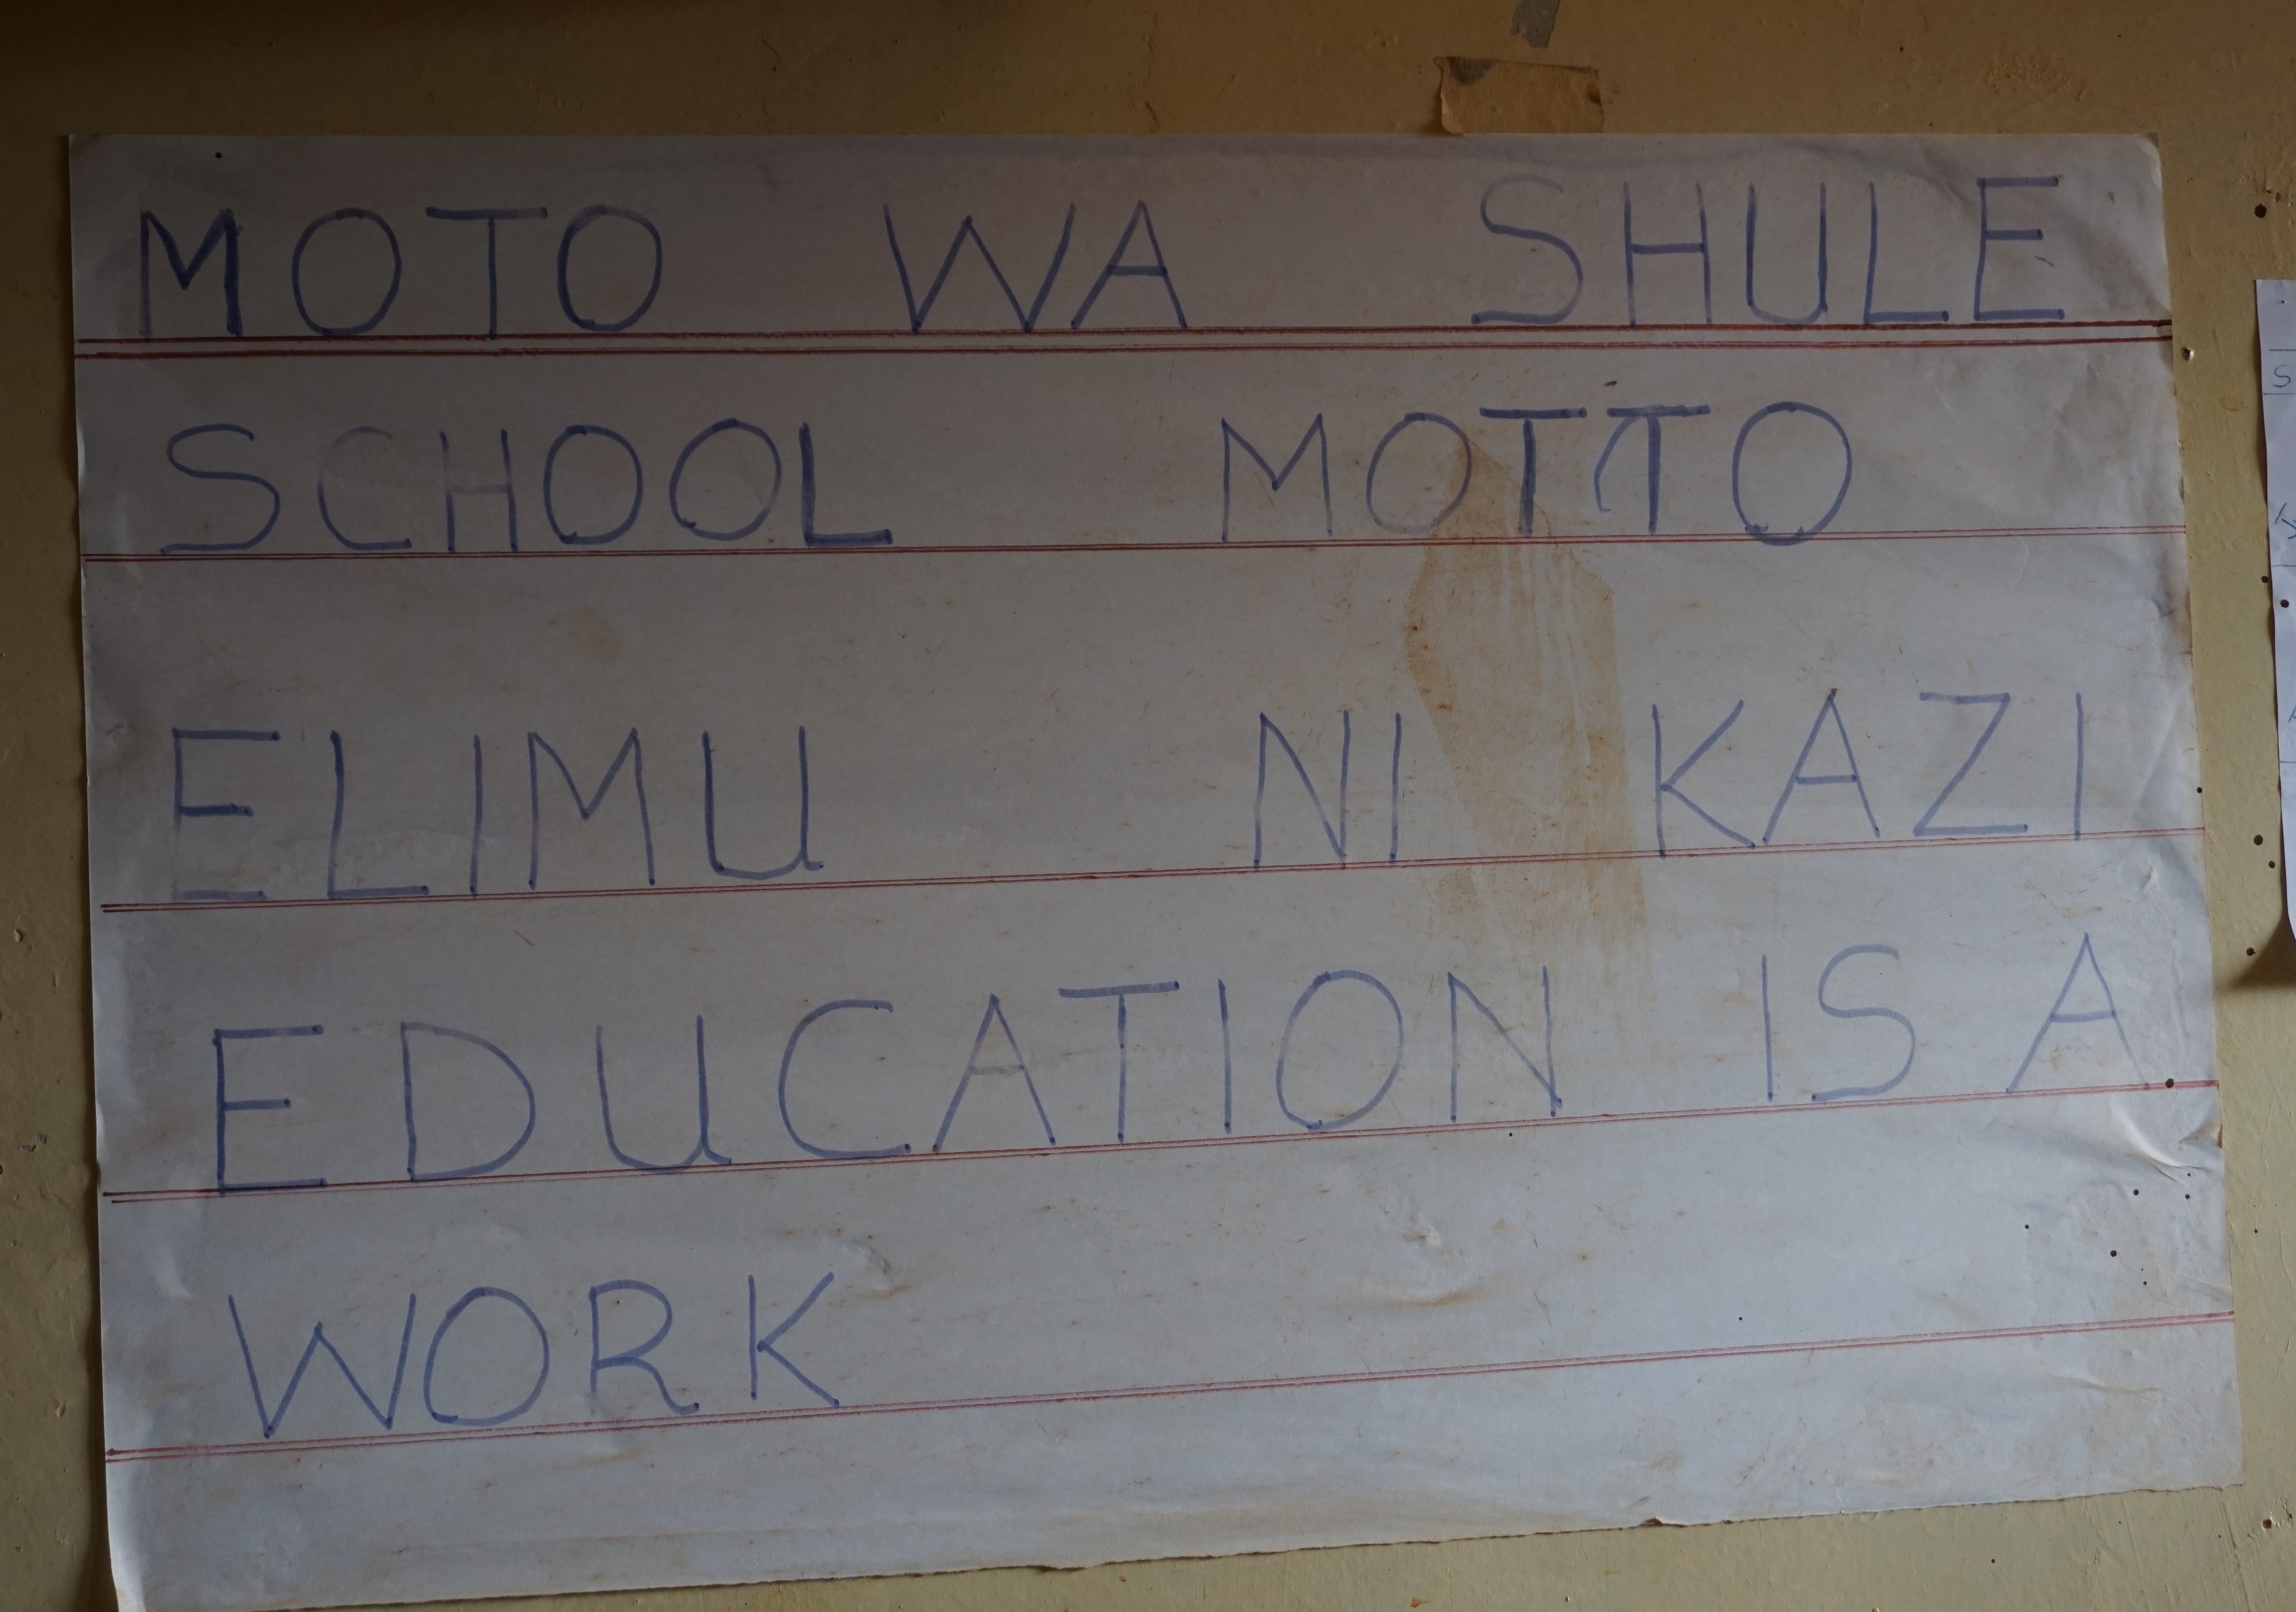 MOTO WA SHULE
SCHOOL MOTTO
ELIMU NI KAZI
EDUCATION IS A
WORK